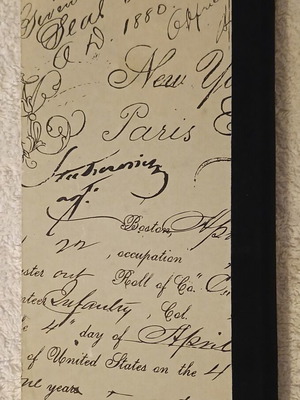 Given
Seal
A D. 1880
New Yo
Paris E
adj.
Boston, Apr
22, occupation
uster out Roll of Co. "C"
nteer Infantry, Col.
e 4" day of April
of United States on the 4
ne years